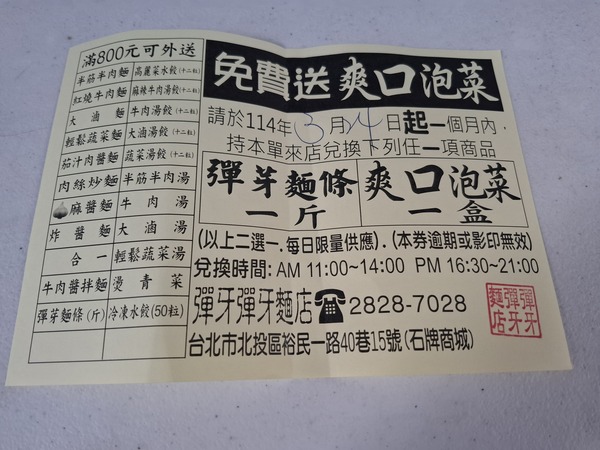 滿800元可外送
半筋半肉麵 高麗菜水餃(十二粒)
紅燒牛肉麵 麻辣牛肉湯餃(十二粒)
大滷麵 牛肉湯餃(十二粒)
輕鬆蔬菜麵 大滷湯餃(十二粒)
茄汁肉醬麵 蔬菜湯餃(十二粒)
肉絲炒麵 半筋半肉湯
麻醬麵 牛肉湯
炸醬麵 大滷湯
合一 輕鬆蔬菜湯
牛肉醬拌麵 燙青菜
彈芽麵條(斤) 冷凍水餃(50粒)
免費送爽口泡菜
請於114年3月14日起一個月內，
持本單來店兌換下列任一項商品
彈芽麵條 爽口泡菜
一斤 一盒
(以上二選一.每日限量供應).(本券逾期或影印無效)
兌換時間: AM 11:00~14:00 PM 16:30~21:00
彈牙彈牙麵店☎2828-7028
台北市北投區裕民一路40巷15號(石牌商城)
彈牙
彈牙
麵店